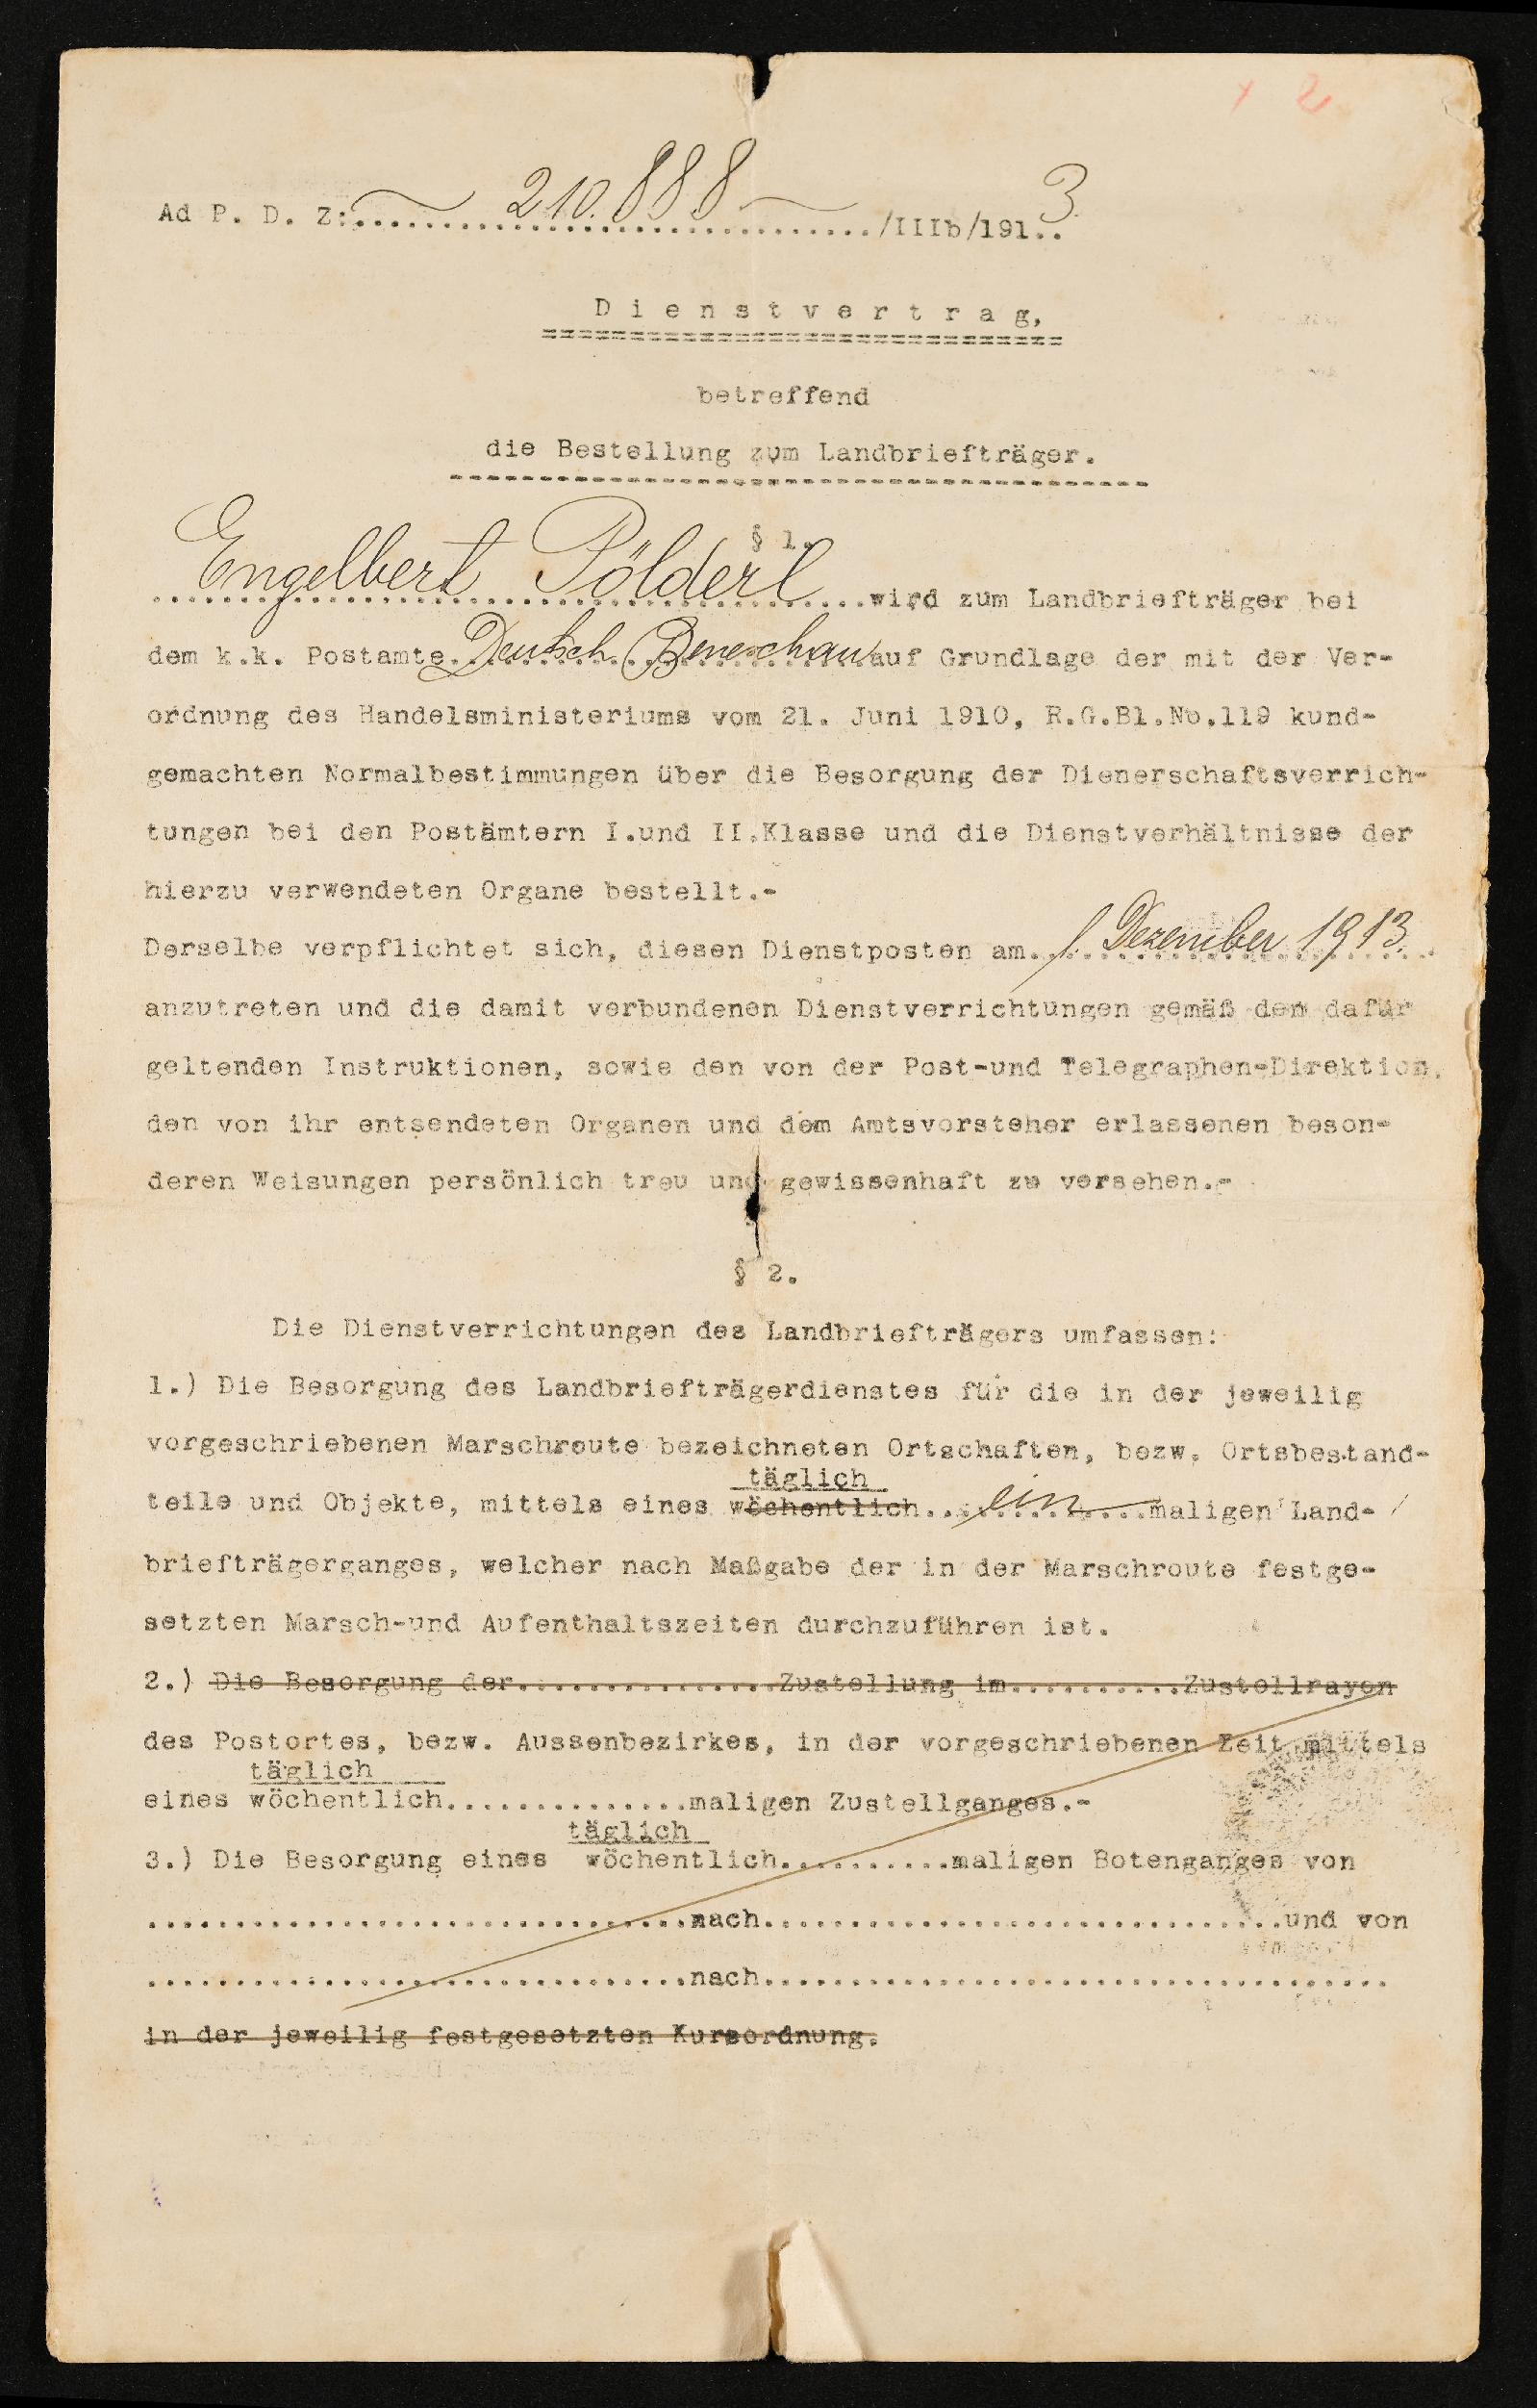 2
Ad P. D. Z:.....210.888...../IIIb/1913.
Dienstvertrag,
betreffend
die Bestellung zum Landbriefträger.
§ 1.
Engelbert Pölderl wird zum Landbriefträger bei
dem k.k. Postamte Deutsch Beneschau auf Grundlage der mit der Ver-
ordnung des Handelsministeriums vom 21. Juni 1910, R.G.Bl.No.119 kund-
gemachten Normalbestimmungen über die Besorgung der Dienerschaftsverrich-
tungen bei den Postämtern I.und II.Klasse und die Dienstverhältnisse der
hierzu verwendeten Organe bestellt.-
Derselbe verpflichtet sich, diesen Dienstposten am 1. Dezember 1913.
anzutreten und die damit verbundenen Dienstverrichtungen gemäß den dafür
geltenden Instruktionen, sowie den von der Post-und Telegraphen-Direktion,
den von ihr entsendeten Organen und dem Amtsvorsteher erlassenen beson-
deren Weisungen persönlich treu und gewissenhaft zu versehen.-
§ 2.
Die Dienstverrichtungen des Landbriefträgers umfassen:
1.) Die Besorgung des Landbriefträgerdienstes für die in der jeweilig
vorgeschriebenen Marschroute bezeichneten Ortschaften, bezw. Ortsbestand-
täglich
teile und Objekte, mittels eines wöchentlich....ein....maligen Land-
briefträgerganges, welcher nach Maßgabe der in der Marschroute festge-
setzten Marsch-und Aufenthaltszeiten durchzuführen ist.
2.) Die Besorgung der...............Zustellung im..........Zustellrayon
des Postortes, bezw. Aussenbezirkes, in der vorgeschriebenen Zeit mittels
täglich
eines wöchentlich..............maligen Zustellganges.-
täglich
3.) Die Besorgung eines wöchentlich..........maligen Botenganges von
................................nach..............................und von
................................nach....................................
in der jeweilig festgesetzten Kursordnung.